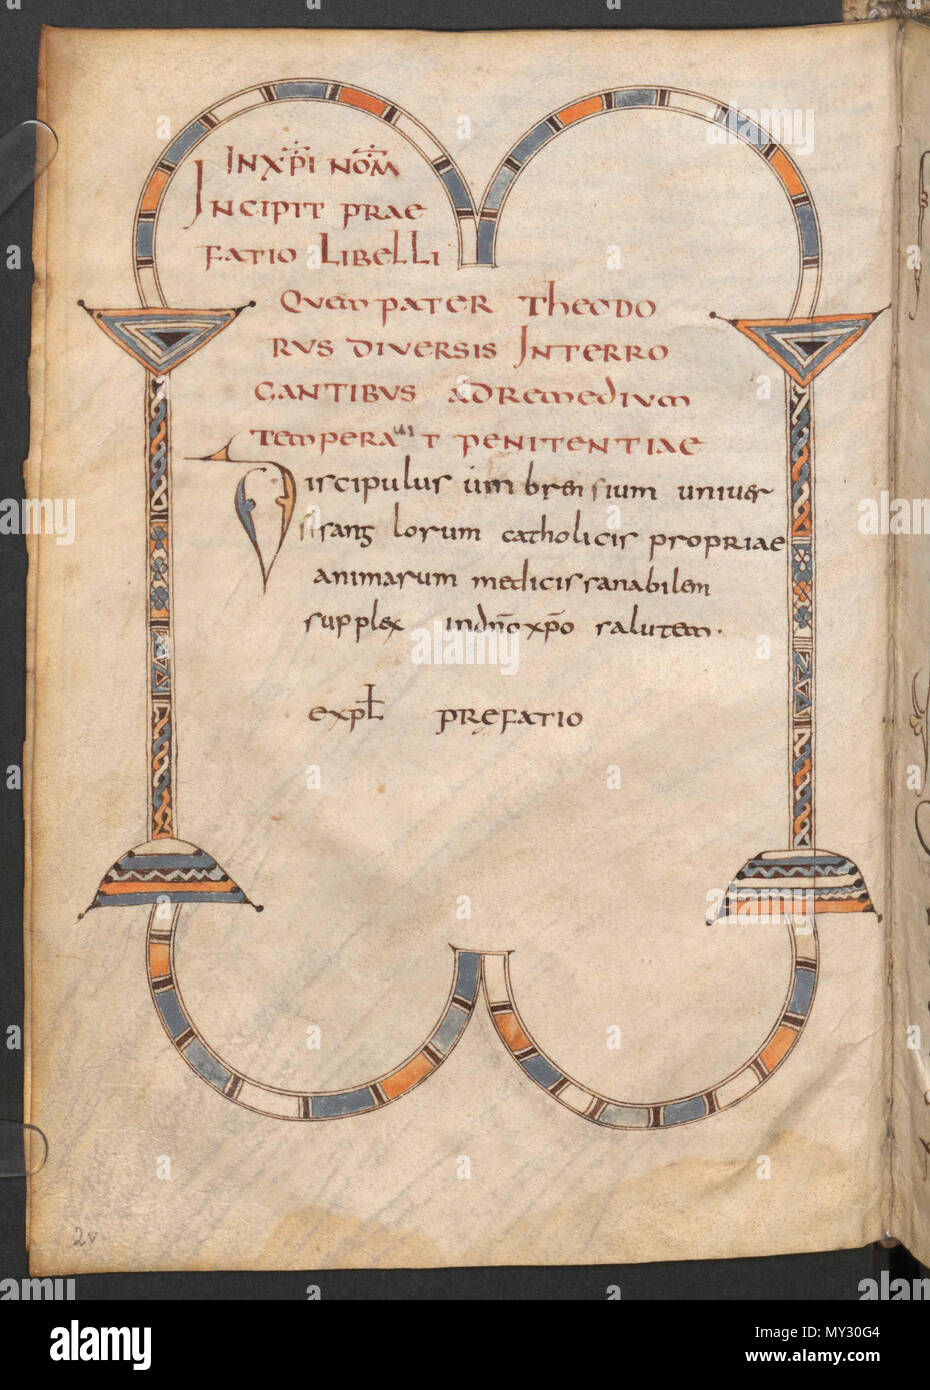 INXP̄I NOM̄
INCIPIT PRAE
FATIO LIBELLI
QUEM PATER THEODO
RUS DIVERSIS INTERRO
GANTIBUS ADREMEDIUM
TEMPERAUIT PENITENTIAE
Discipulus umbrensium univer
sisanglorum catholicis propriae
animarum medicissanabilem
supplex indn̄o xp̄o salutem.
expł prefatio
2v
alamy
Image ID: MY30G4
www.alamy.com